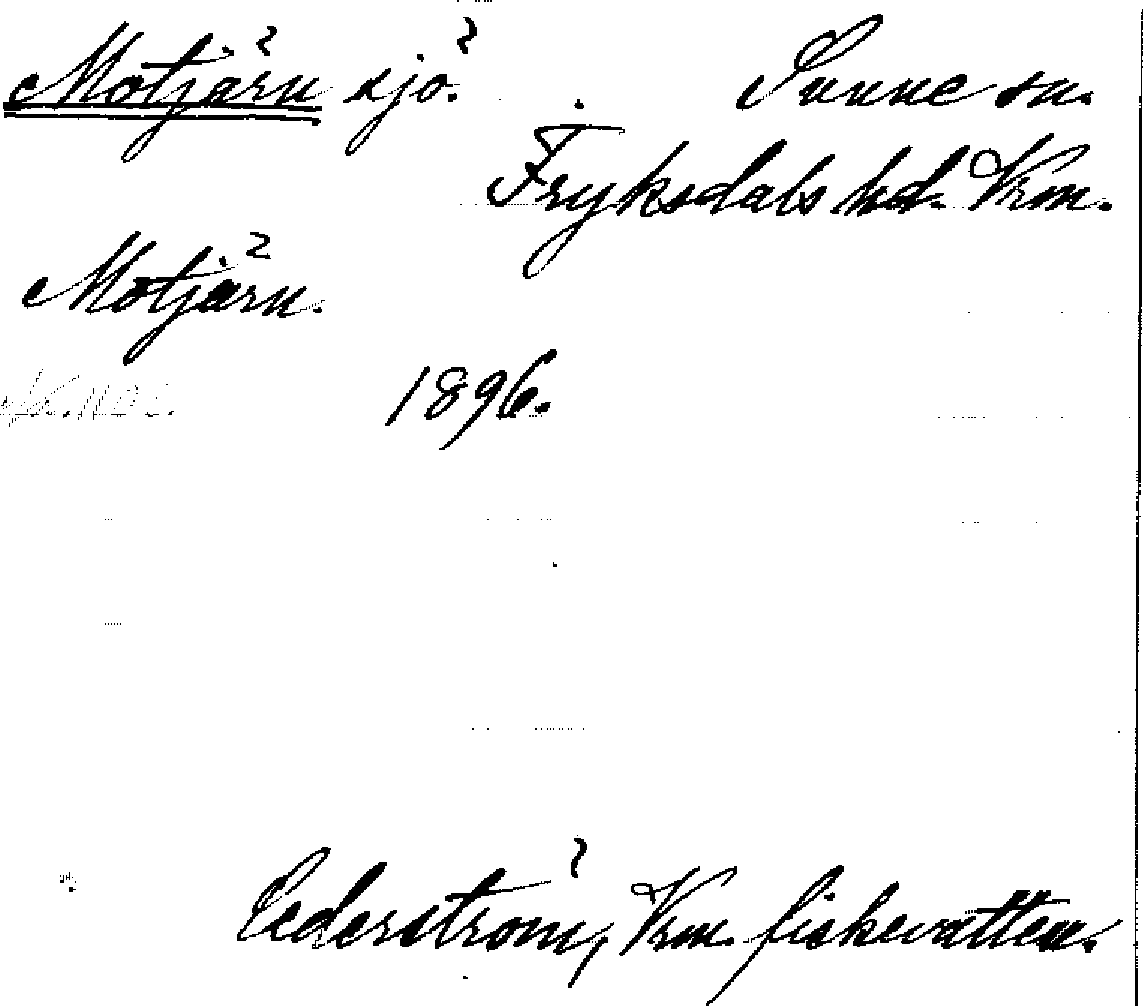 Motjärn sjö. Sunne sn.
Fryksdals hd. Vrm.
Motjärn.
1896.
Cederström, Vrm. fiskevatten.